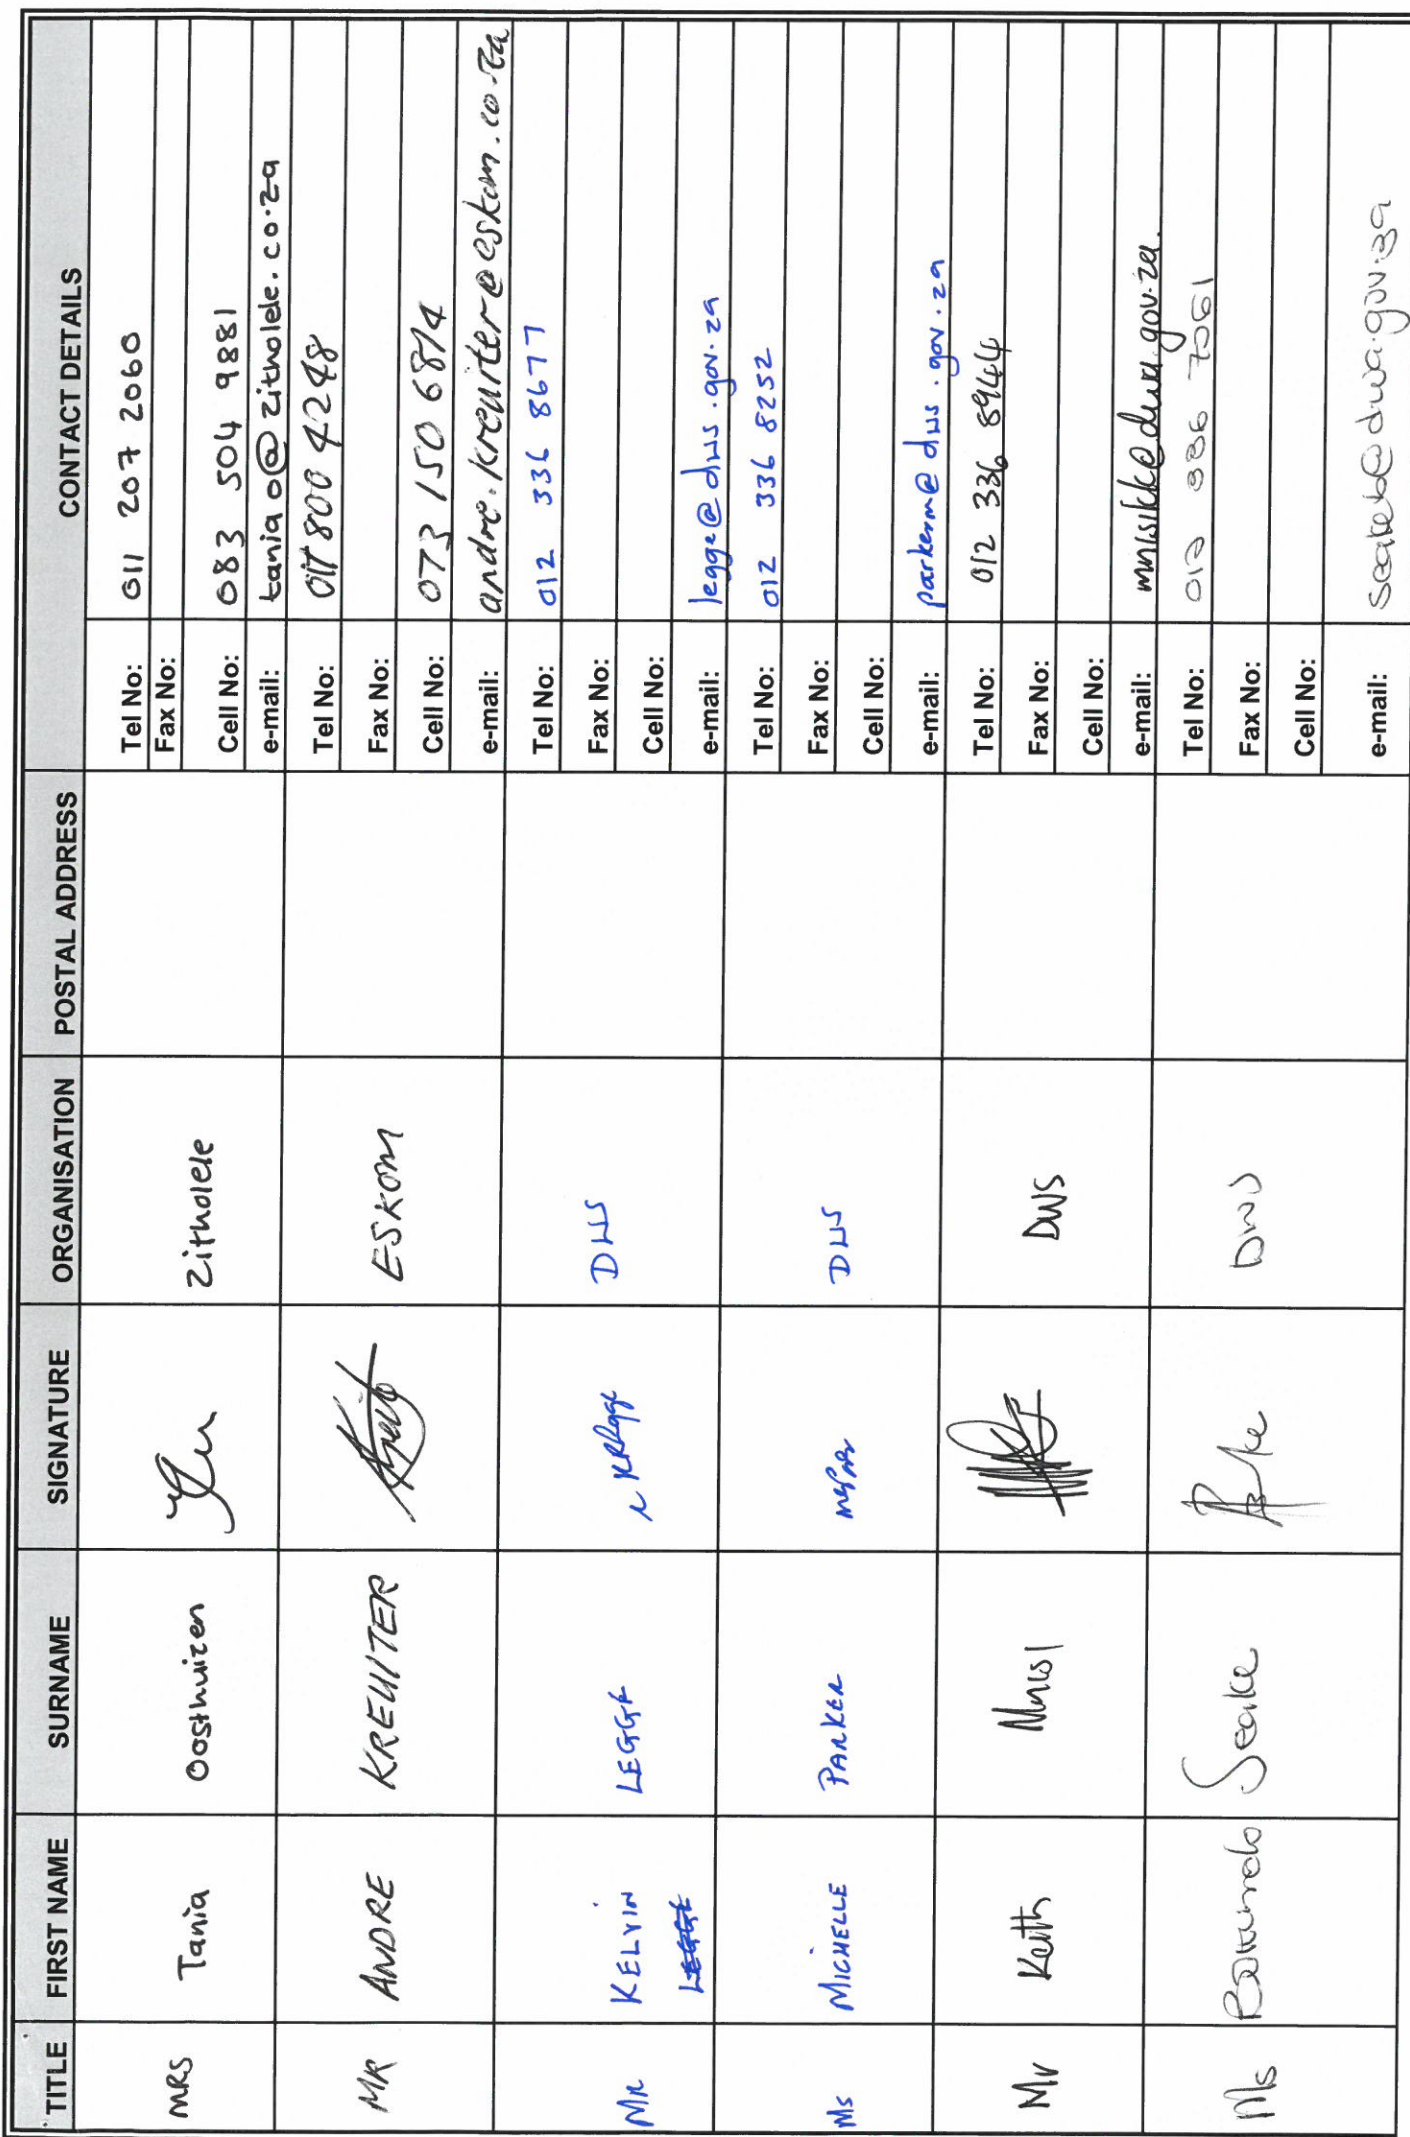 TITLE FIRST NAME SURNAME SIGNATURE ORGANISATION POSTAL ADDRESS CONTACT DETAILS
MRS Tania Oosthuizen Zitholele
Tel No: 011 207 2060
Fax No:
Cell No: 083 504 9881
e-mail: taniao@zitholele.co.za
MR ANDRE KREUITER ESKOM
Tel No: 011 800 4248
Fax No:
Cell No: 073 150 6814
e-mail: andre.kreuiter@eskom.co.za
MR KELVIN LEGGE DWS
LEGGE
Tel No: 012 336 8677
Fax No:
Cell No:
e-mail: legge@dws.gov.za
MS MICHELLE PARKER DWS
Tel No: 012 336 8252
Fax No:
Cell No:
e-mail: parkerm@dws.gov.za
Mr Keith Mnisi DWS
Tel No: 012 336 8944
Fax No:
Cell No:
e-mail: mnisikk@dwa.gov.za.
Ms Seake DWS
Tel No: 012 336 7561
Fax No:
Cell No:
e-mail: seakeb@dwa.gov.za